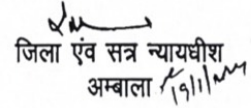 जिला एंव सत्र न्यायधीश
अम्बाला